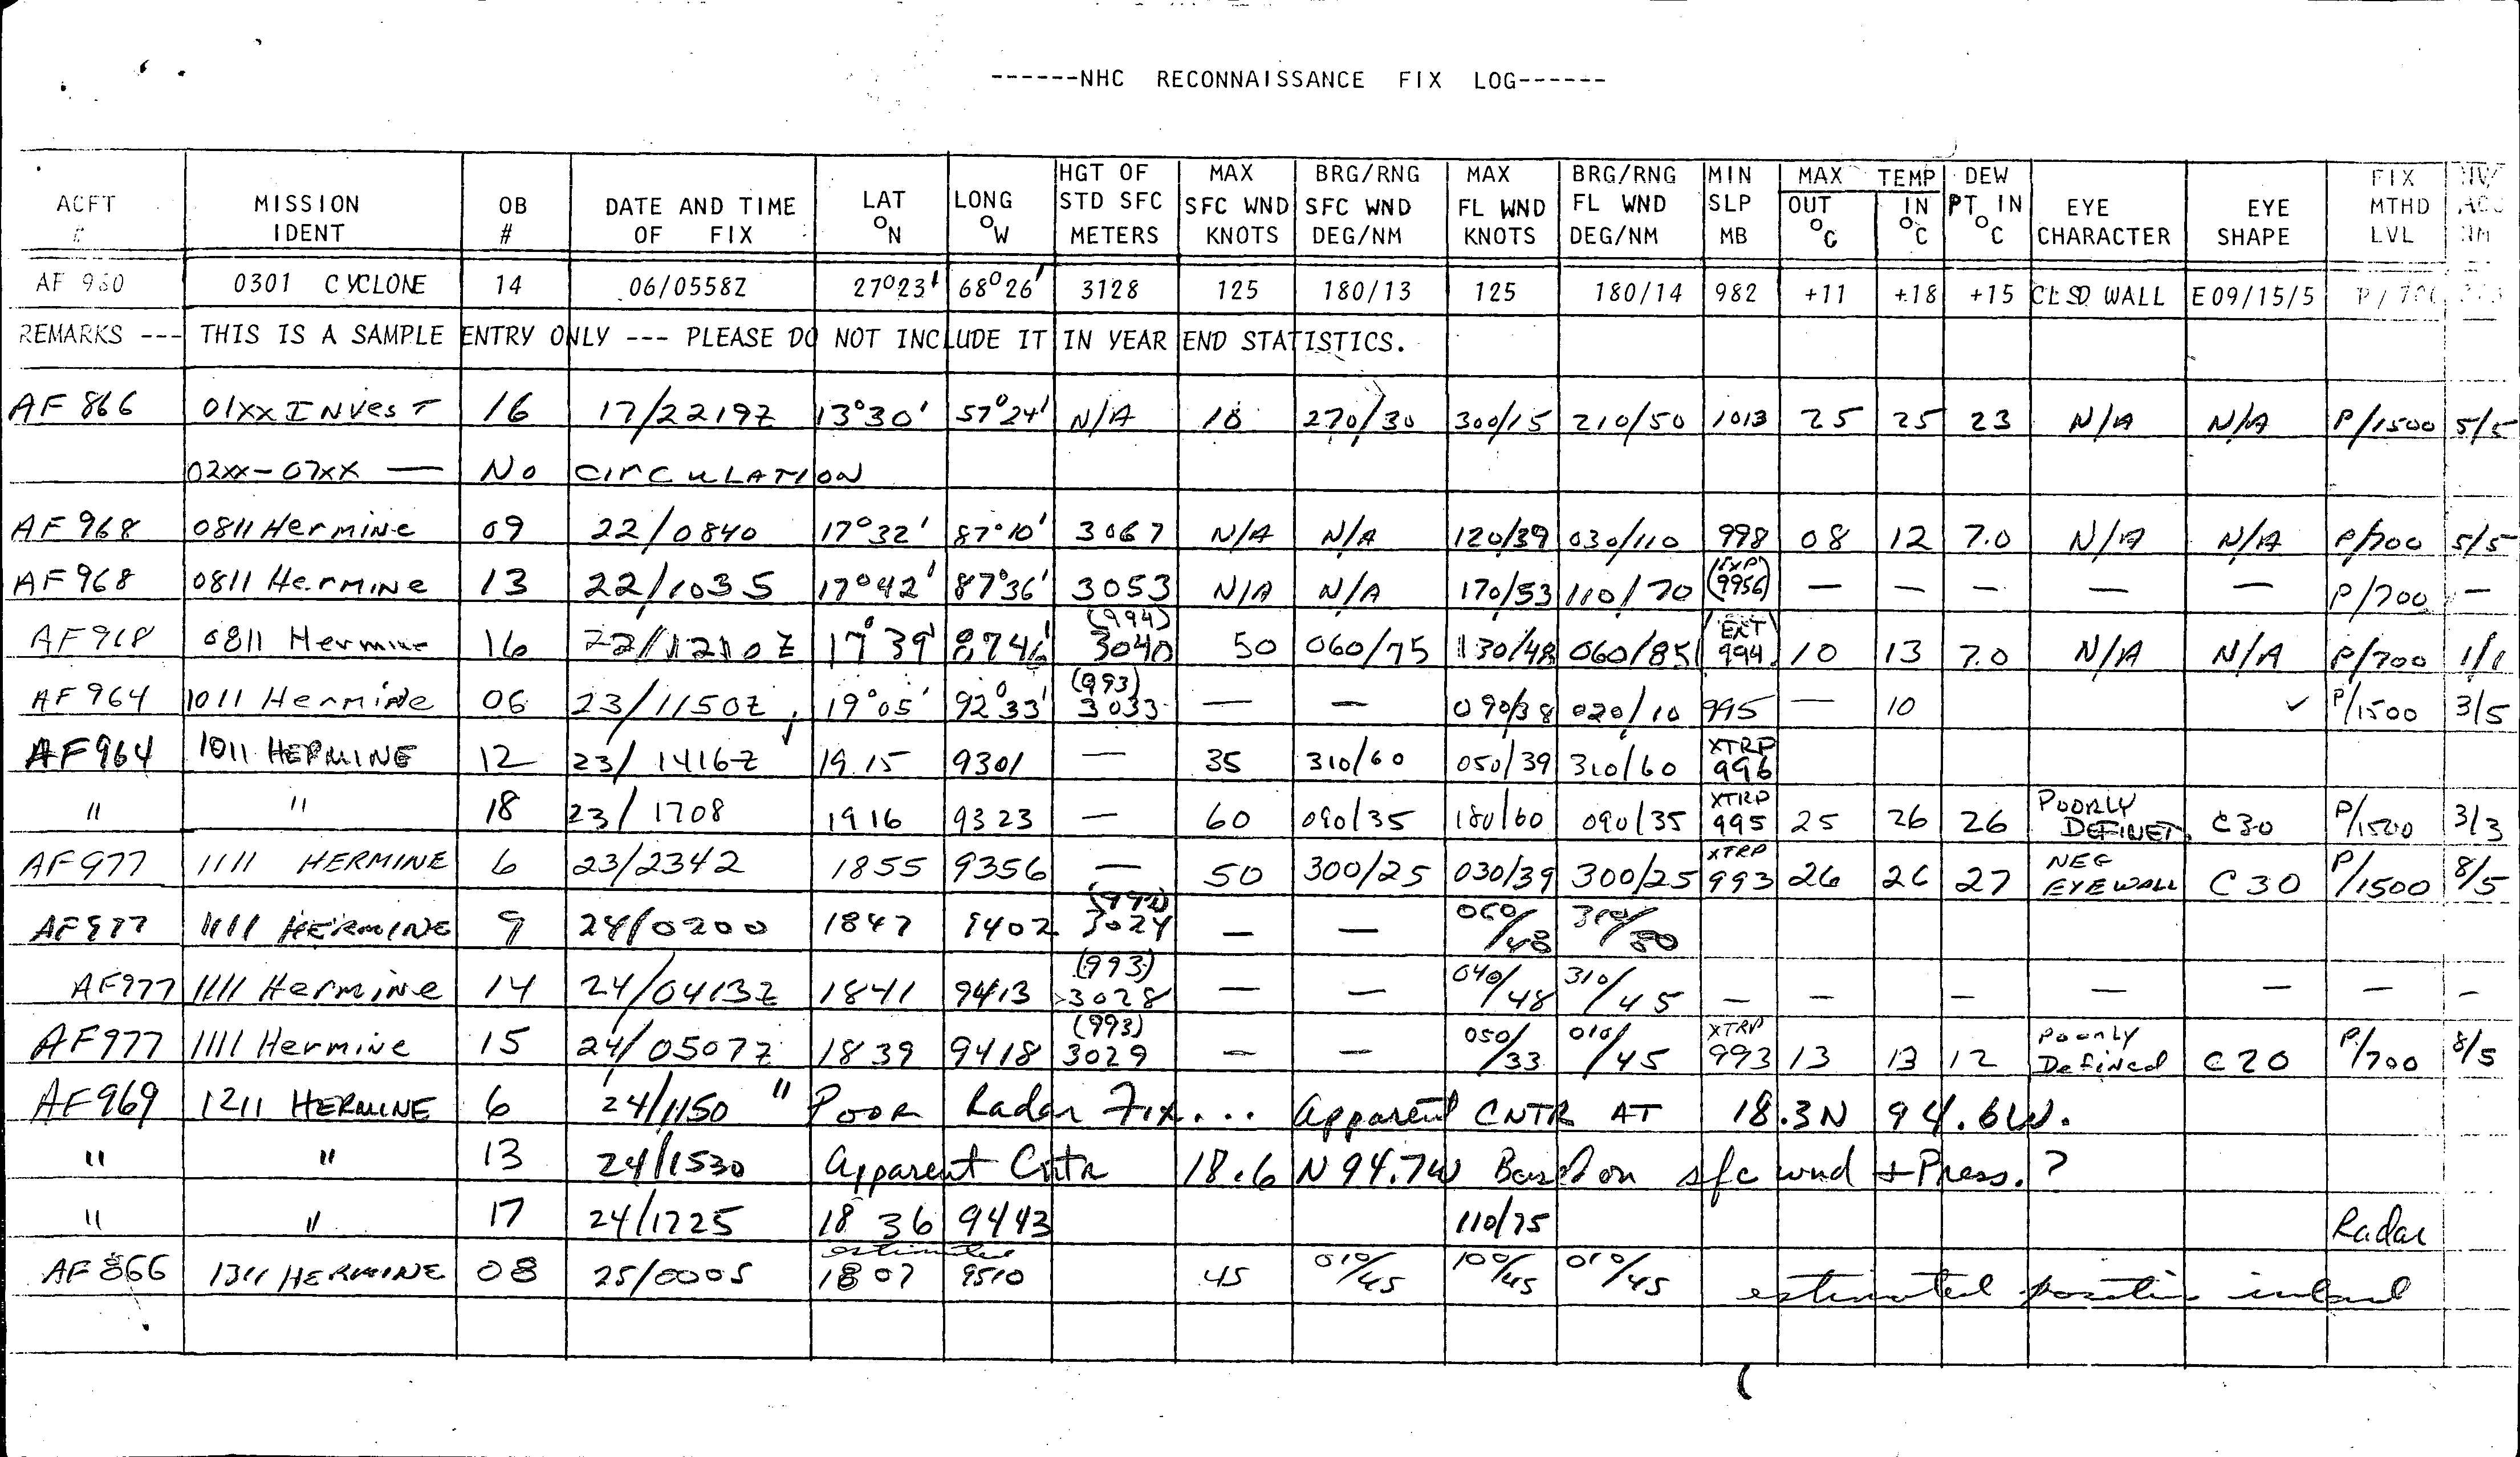 ------NHC RECONNAISSANCE FIX LOG------
ACFT # MISSION IDENT OB # DATE AND TIME OF FIX LAT °N LONG °W HGT OF STD SFC METERS MAX SFC WND KNOTS BRG/RNG SFC WND DEG/NM MAX FL WND KNOTS BRG/RNG FL WND DEG/NM MIN SLP MB MAX OUT °C TEMP IN °C DEW PT IN °C EYE CHARACTER EYE SHAPE FIX MTHD LVL NM
AF 980 0301 CYCLONE 14 06/0558Z 27°23' 68°26' 3128 125 180/13 125 180/14 982 +11 +18 +15 CLSD WALL E09/15/5 P/700
REMARKS --- THIS IS A SAMPLE ENTRY ONLY --- PLEASE DO NOT INCLUDE IT IN YEAR END STATISTICS.
AF 866 01XX INVesT 16 17/2219Z 13°30' 57°24' N/A 10 270/30 300/15 210/50 1013 25 25 23 N/A N/A P/1500 5/5
02XX-07XX — No CIrCULATION
AF 968 0811 HerMINe 09 22/0840 17°32' 87°10' 3067 N/A N/A 120/39 030/110 998 08 12 7.0 N/A N/A P/700 5/5
AF 968 0811 HerMINe 13 22/1035 17°42' 87°36' 3053 N/A N/A 170/53 110/70 (9956) — — — — — P/700 —
AF968 0811 Hermine 16 22/1210Z 17°39' 8746' (994) 3040 50 060/75 130/48 060/85 EXT 994 10 13 7.0 N/A N/A P/700 1/1
AF 964 1011 HerMiNe 06 23/1150Z 19°05' 92°33' (993) 3033 — — 090/38 020/10 995 — 10 ✓ P/1500 3/5
AF964 1011 HERMINE 12 23/1416Z 19.15 9301 — 35 310/60 050/39 310/60 XTRP 996
" " 18 23/1708 1916 9323 — 60 090/35 180/60 090/35 XTRP 995 25 26 26 POORLY DEFINED C30 P/1500 3/3
AF977 1111 HERMINE 6 23/2342 1855 9356 — 50 300/25 030/39 300/25 XTRP 993 26 26 27 NEG EYEWALL C30 P/1500 8/5
AF977 1111 HERMINE 9 24/0200 1847 9402 3024 — — 060/48
AF977 1111 HermiNe 14 24/0413Z 1841 9413 (993) 3028 — — 040/48 310/45 — — — — — — —
AF977 1111 Hermine 15 24/0507Z 1839 9418 (993) 3029 — — 050/33 010/45 XTRP 993 13 13 12 Poorly DefiNed C20 P/700 8/5
AF969 1211 HERMINE 6 24/1150 " POOR Radar Fix... apparent CNTR AT 18.3N 94.6W.
" " 13 24/1530 apparent Cntr 18.6 N 94.7W Based on sfc wnd + Press.?
" " 17 24/1725 18 36 9443 110/75 Radar
AF 866 1311 HERMINE 08 25/0005 estimated 1807 9510 45 010/45 100/45 010/45 estimated position inland